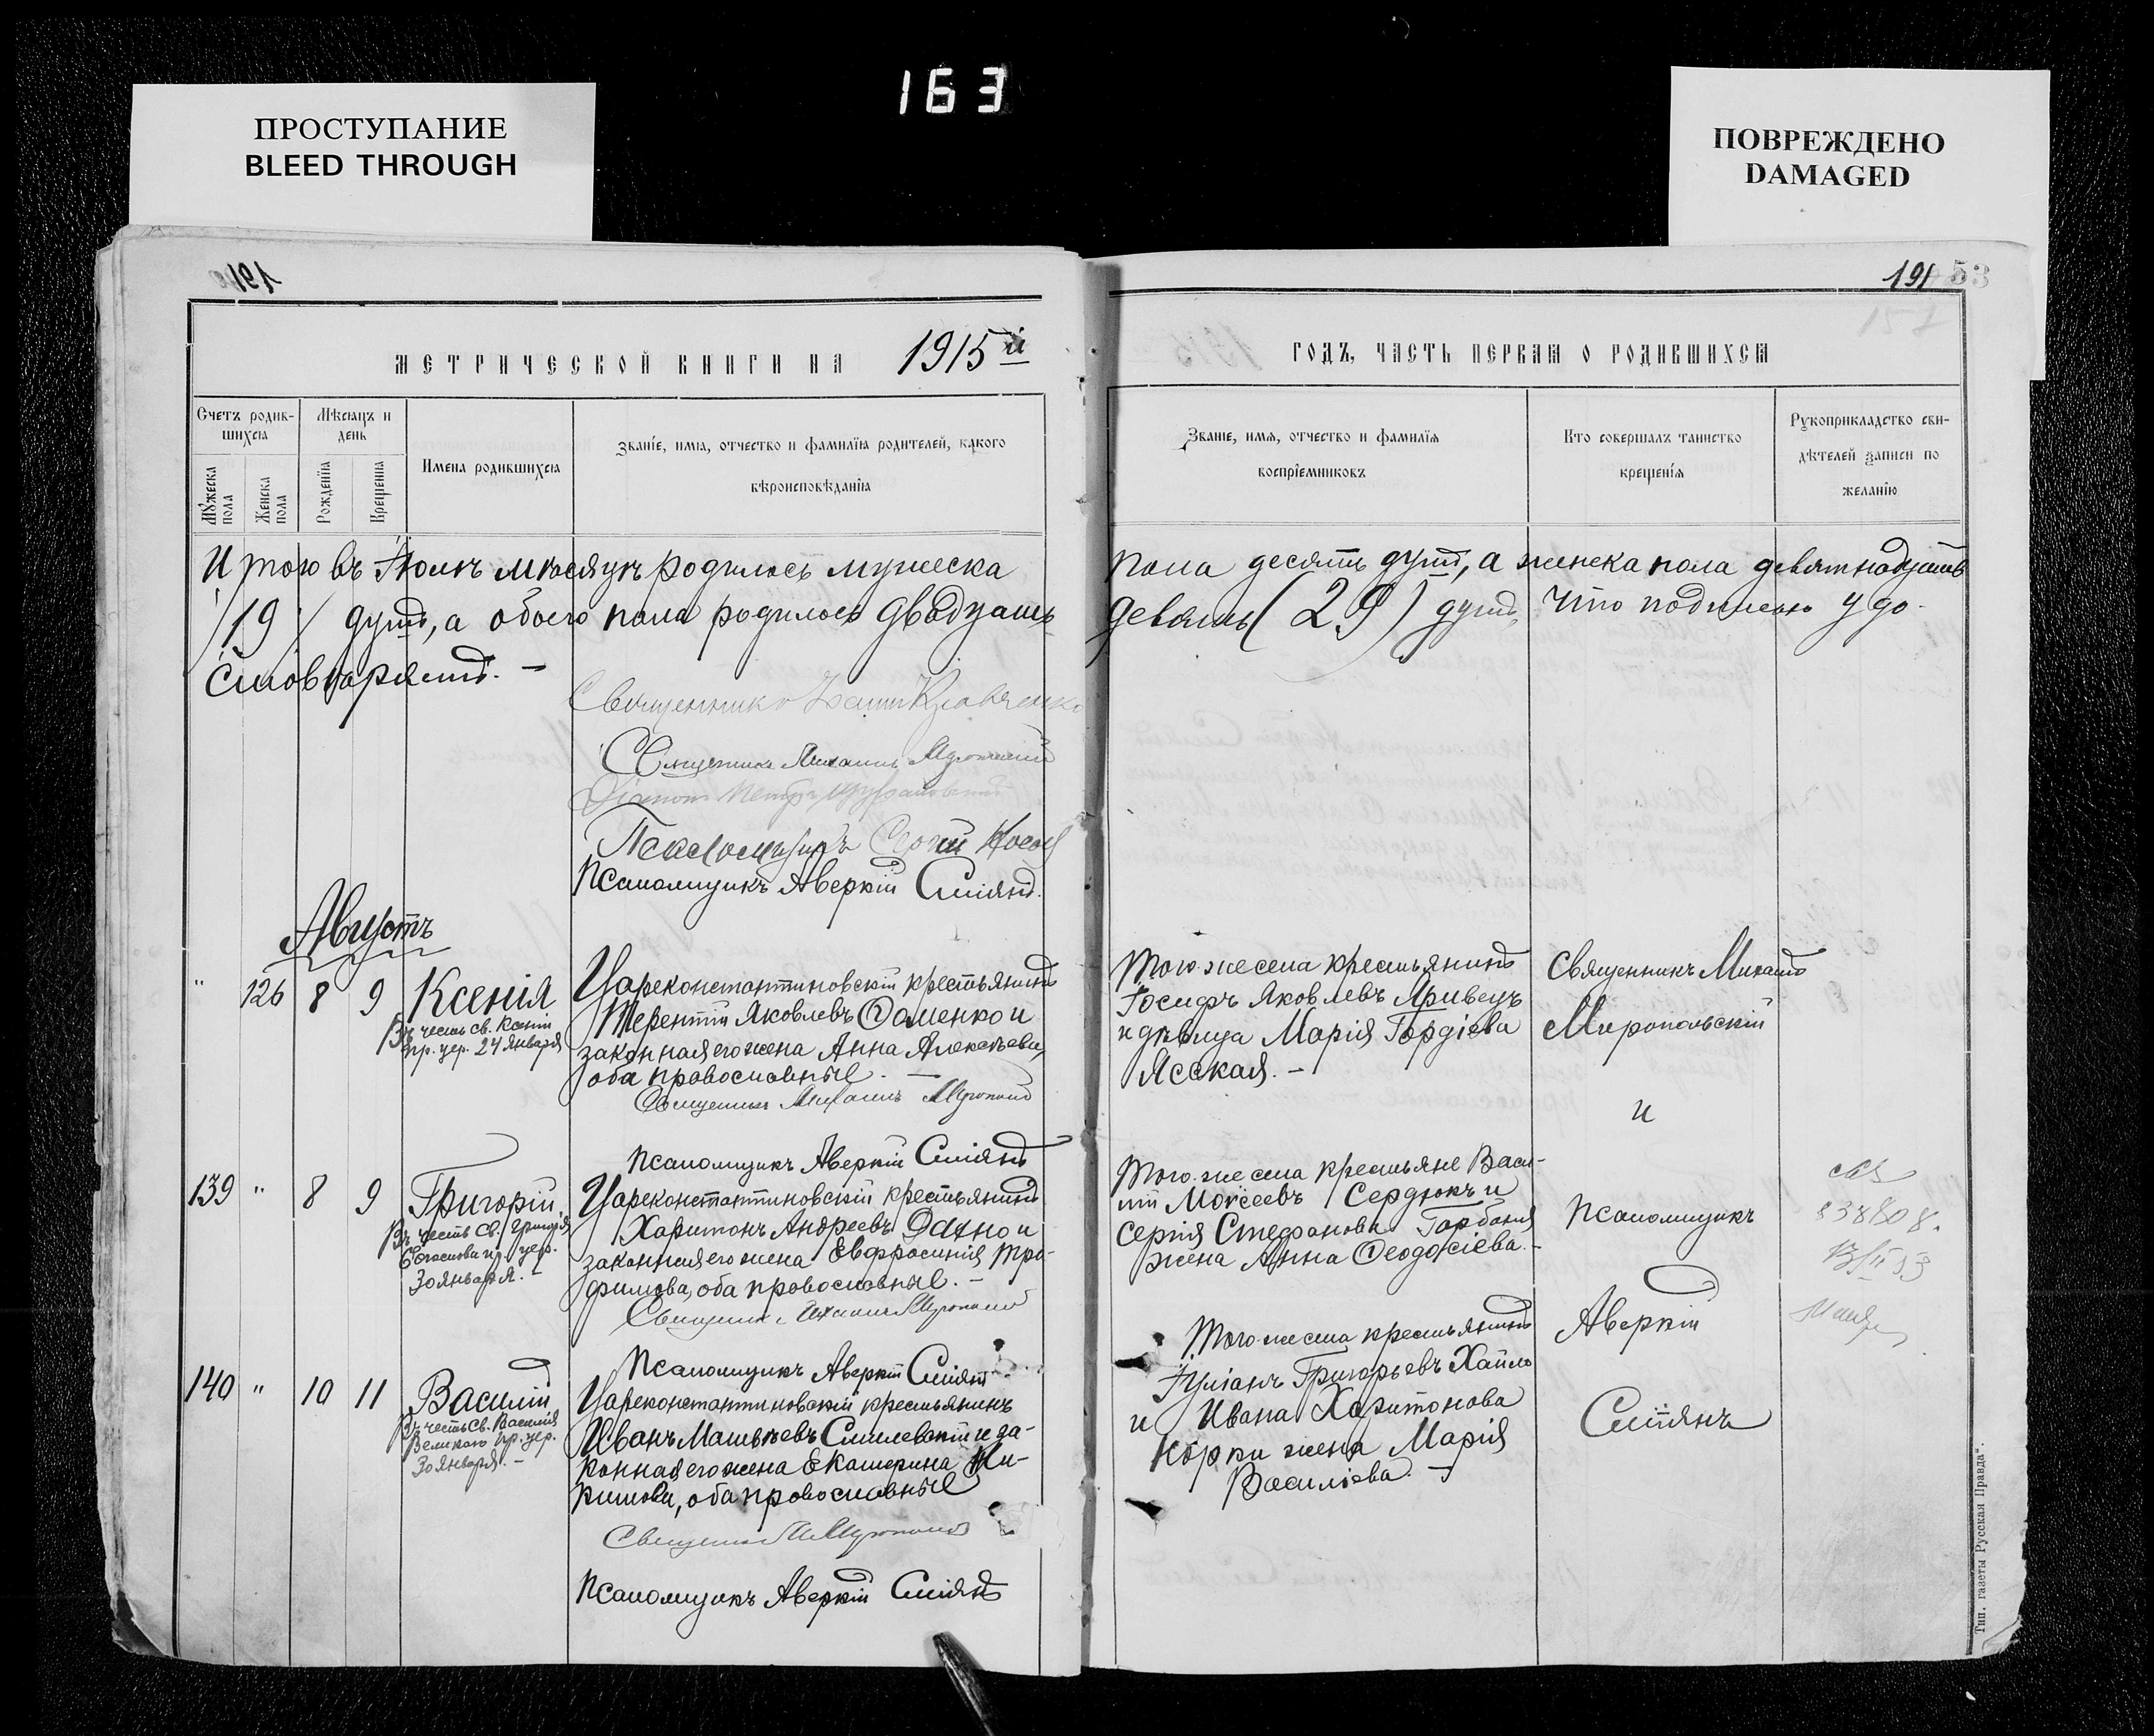 163
ПРОСТУПАНИЕ
BLEED THROUGH
ПОВРЕЖДЕНО
DAMAGED
191
53
МЕТРИЧЕСКОЙ КНИГИ НА 1915й
ГОДЪ, ЧАСТЬ ПЕРВАЯ О РОДИВШИХСЯ
Счетъ родив-
шихся
Мужеска пола
Женска пола
Мѣсяцъ и
день
Рожденія
Крещенія
Имена родившихся
Званіе, имя, отчество и фамилія родителей, какого
вѣроисповѣданія
Званіе, имя, отчество и фамилія
воспріемниковъ
Кто совершалъ таинство
крещенія
Рукоприкладство сви-
дѣтелей записи по
желанію
Итого въ Іюлѣ мѣсяцѣ родилось мужеска
пола десять душъ, а женска пола девятнадцать
/19/ душъ, а обоего пола родилось двадцать
девять (29) душъ, что подписью удо-
стовѣряемъ. –
Священникъ Кравченко
Священникъ Михаилъ Миропольскій
Діаконъ Петръ
Псаломщикъ Сергій
Псаломщикъ Аверкій Сміянъ.
Августъ
" 126 8 9 Ксенія
Въ честь св. Ксеніи
пр. цер. 24 января
Цареконстантиновскій крестьянинъ
Терентій Яковлевъ Ѳоменко и
законная его жена Анна Алексѣева,
оба православные. –
Священникъ Михаилъ Миропол
Псаломщикъ Аверкій Сміянъ
Того-же села крестьянинъ
Іосифъ Яковлевъ Кривецъ
и дѣвица Марія Гордіева
Ясская. –
Священникъ Михаилъ
Миропольскій
и
Псаломщикъ
Аверкій
Сміянъ
139 " 8 9 Григорій
Въ честь св. Григорія
Богослова пр. цер.
30 января. –
Цареконстантиновскій крестьянинъ
Харитонъ Андреевъ Дахно и
законная его жена Евфросинія Тро-
фимова, оба православные. –
Священникъ Михаилъ Миропол
Псаломщикъ Аверкій Сміянъ
Того-же села крестьяне Васи-
лій Моѵсеевъ Сердюкъ и
Сергія Стефанова Горбаня
жена Анна Ѳеодосіева. –
838808.
140 " 10 11 Василій
Въ честь св. Василія
Великаго пр. цер.
30 января. –
Цареконстантиновскій крестьянинъ
Иванъ Матвѣевъ Смилевскій и за-
конная его жена Екатерина Ки-
рилова, оба православные
Священникъ М. Миропол
Псаломщикъ Аверкій Сміянъ
Того же села крестьянинъ
Іуліанъ Григорьевъ Хайло
и Ивана Харитонова
Корки жена Марія
Васильева. –
Тип. газеты „Русская Правда".